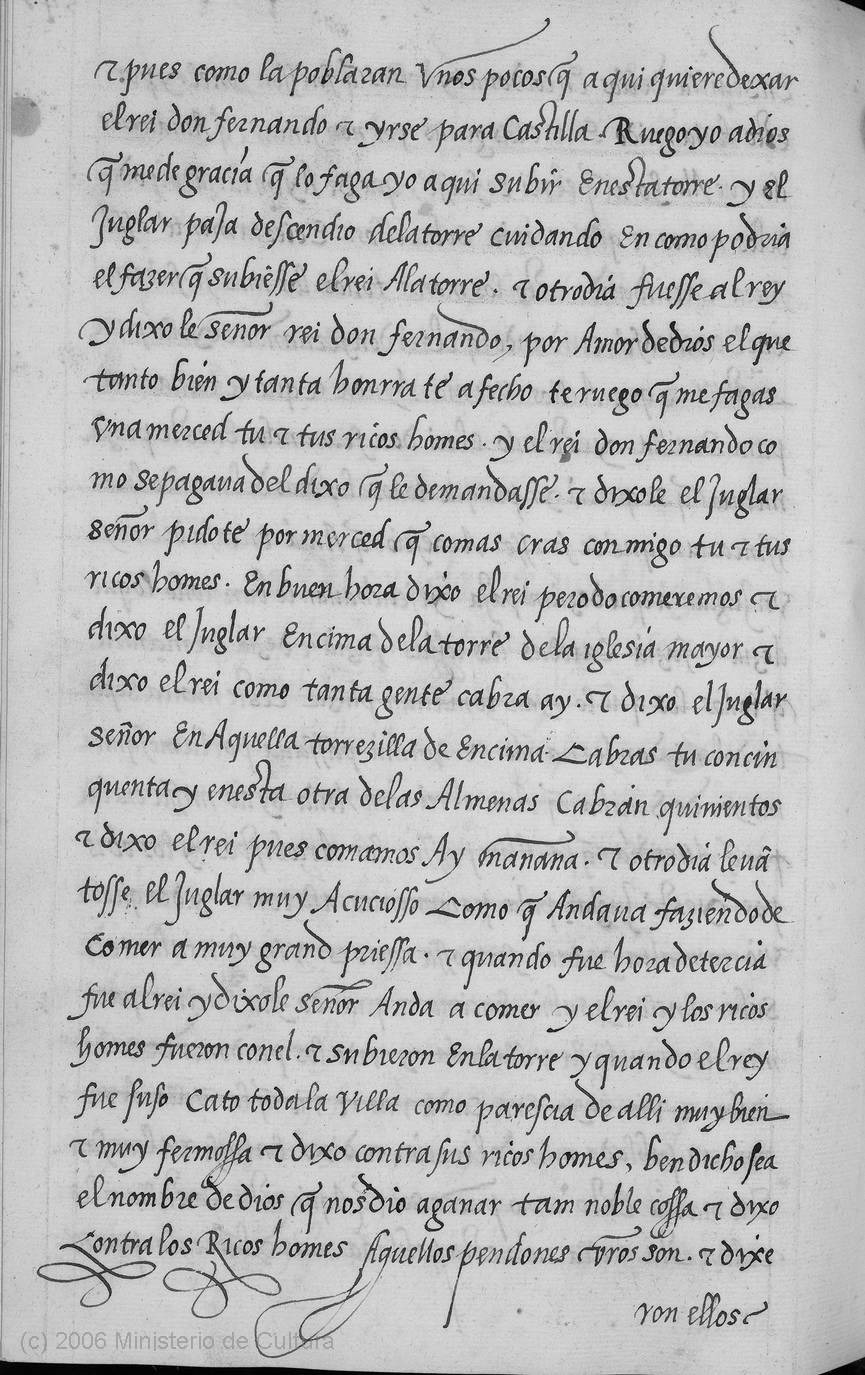 ⁊ pues como la poblaran Vnos pocos q̃ a qui quiere dexar
el rei don fernando ⁊ yrse para Castilla. Ruego yo a dios
q̃ me de gracia q̃ lo faga yo a qui subir En esta torre. y el
Juglar paja descendio de la torre cuidando En como podria
el fazer q̃ subiesse el rei A la torre. ⁊ otro dia fuesse al rey
y dixo le señor rei don fernando, por Amor de dios el que
tanto bien y tanta honrra te a fecho te ruego q̃ me fagas
Vna merced tu ⁊ tus ricos homes. y el rei don fernando co
mo se pagaua del dixo q̃ le demandasse. ⁊ dixole el Juglar
señor pido te por merced q̃ comas cras conmigo tu ⁊ tus
ricos homes. En buen hora dixo el rei pero do comeremos ⁊
dixo el Juglar Encima de la torre de la iglesia mayor ⁊
dixo el rei como tanta gente cabra ay. ⁊ dixo el Juglar
señor En Aquella torrezilla de Encima Cabras tu con cin
quenta y en esta otra de las Almenas Cabrán quinientos
⁊ dixo el rei pues comamos Ay mañana. ⁊ otro dia leuã
tosse el Juglar muy Acuciosso Como q̃ Andaua faziendo de
Comer a muy grand priessa. ⁊ quando fue hora de tercia
fue al rei y dixole señor Anda a comer y el rei y los ricos
homes fueron con el. ⁊ subieron En la torre y quando el rey
fue suso Cato toda la Villa como parescia de alli muy bien
⁊ muy fermossa ⁊ dixo contra sus ricos homes, bendicho sea
el nombre de dios q̃ nos dio a ganar tam noble cossa ⁊ dixo
Contra los Ricos homes Aquellos pendones vr̃os son. ⁊ dixe
ron ellos
(c) 2006 Ministerio de Cultura